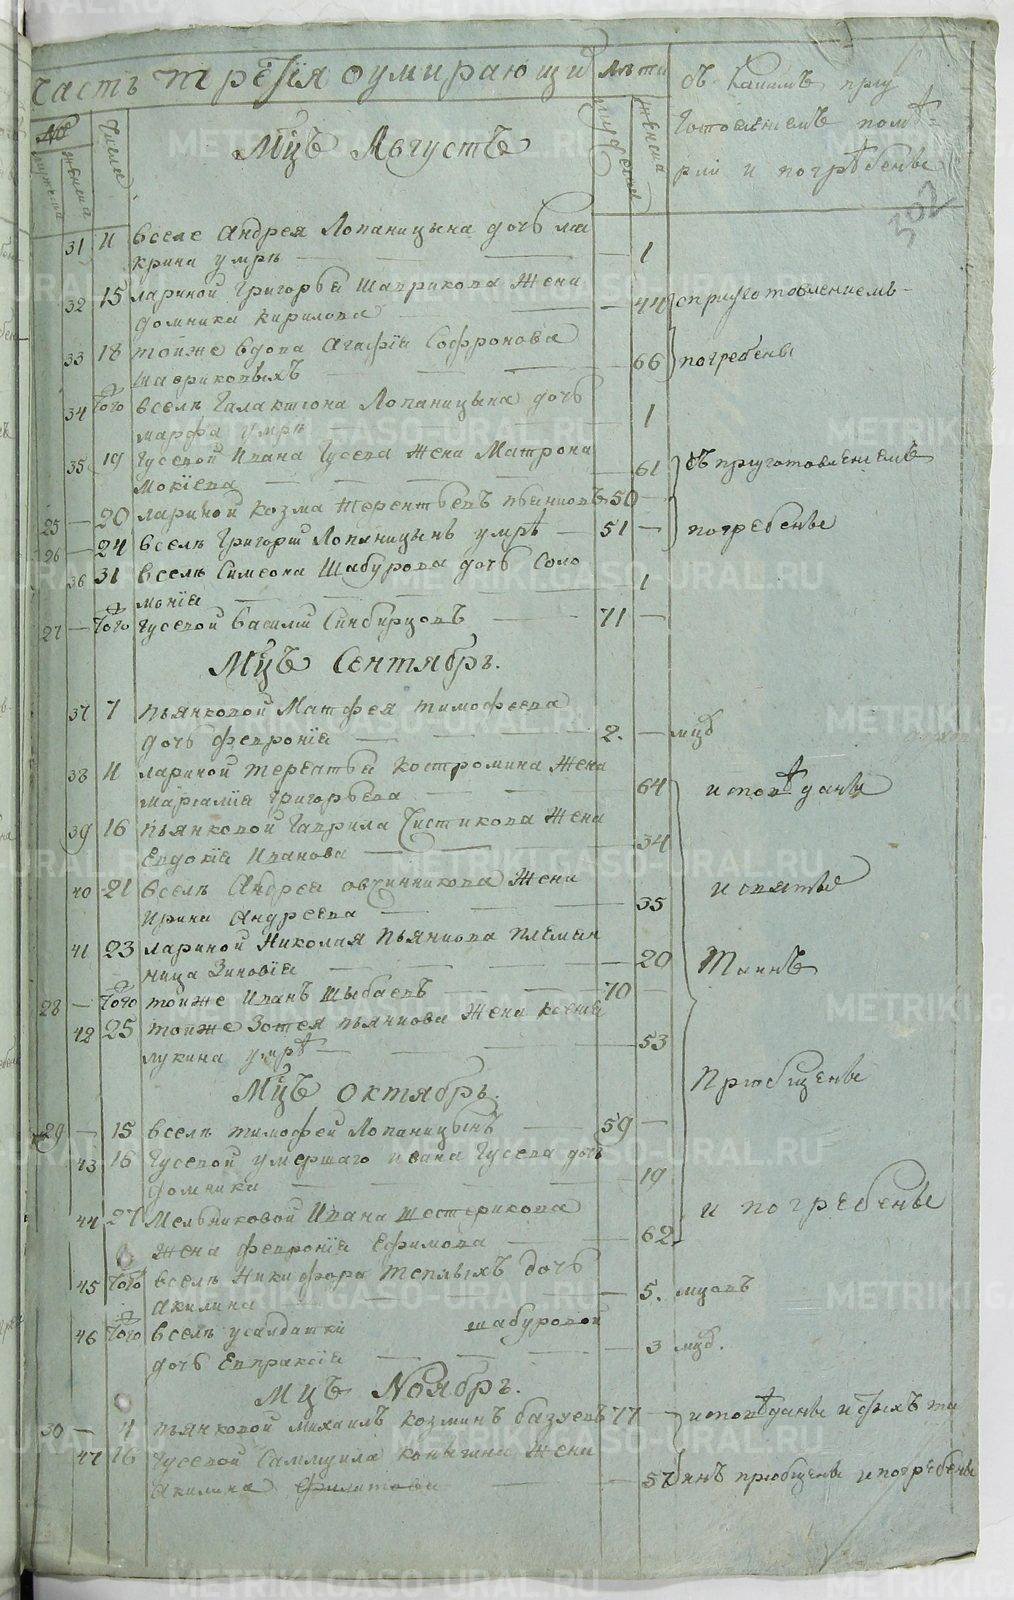 Часть третїя о умирающи лѣта
съ какимъ приу
готовленїемъ помѣ
рли и погрѣбены
№
мужеска
женска
Числа
мужеска
женска
502
Мцъ Августъ
31 11 вселе Андрея Лопаницына дочь ма
крина умрѣ 1
32 15 лариной Григорья Шаврикова жена
домника кирилова 44 сприуготовленїемъ
33 18 тойже вдова Агафїя Софронова
шавриковыхъ 66 погребены
34 того вселѣ Галактїона Лопаницына дочь
марфа умрѣ 1
35 19 Гусевой Ивана Гусева жена Матрона
Мокїева 61 съ приуготовленїемъ
25 20 лариной козма терентьевъ пьянковъ 50
26 24 вселѣ Григорий Лопаницынъ умрѣ 51 погребены
36 31 вселѣ Симеона Шабурова дочь Соло
монїя 1
27 того Гусевой Василий Синбирцовъ 71
Мцъ Сентябрь.
37 7 пьянковой Матфея тимофеева
дочь феврония 2. мцъ
38 11 лариной терентья костромина жена
Григорьева 64 исповѣданы
39 16 пьянковой Гаврила Чистикова жена
Евдокїя Иванова 34
40 21 вселѣ Андрея овчинникова жена
Ирина Андреева 35 и святые
41 23 лариной Николая пьянкова племян
ница Зиновїя 20 Таинъ
28 того тойже Иванъ шыбаевъ 70
42 25 тойже Зотея пьянкова жена ксенья
лукина умрѣ 53
Мцъ октябрь. Прїобщены
29 15 вселѣ тимофей Лопаницынъ 59
43 16 Гусевой умершаго ивана Гусева дочь
домника 19
44 27 Мельниковой Ивана шестерикова
жена феврония Ефимова 62 и погребены
45 того вселѣ Никифора теплыхъ дочь
Акилина 5. мцовъ
46 того вселѣ усалдатки шабуровой
дочь Евпраксїя 3 мцъ.
Мцъ Ноябрь.
30 11 пьянковой михаилъ козминъ базуевъ 77 исповѣданы исвыхъ та
47 16 Гусевой Самуила коныгина жена
Акилина филатова 57 инъ прїобщены ипогребены
METRIKI.GASO-URAL.RU